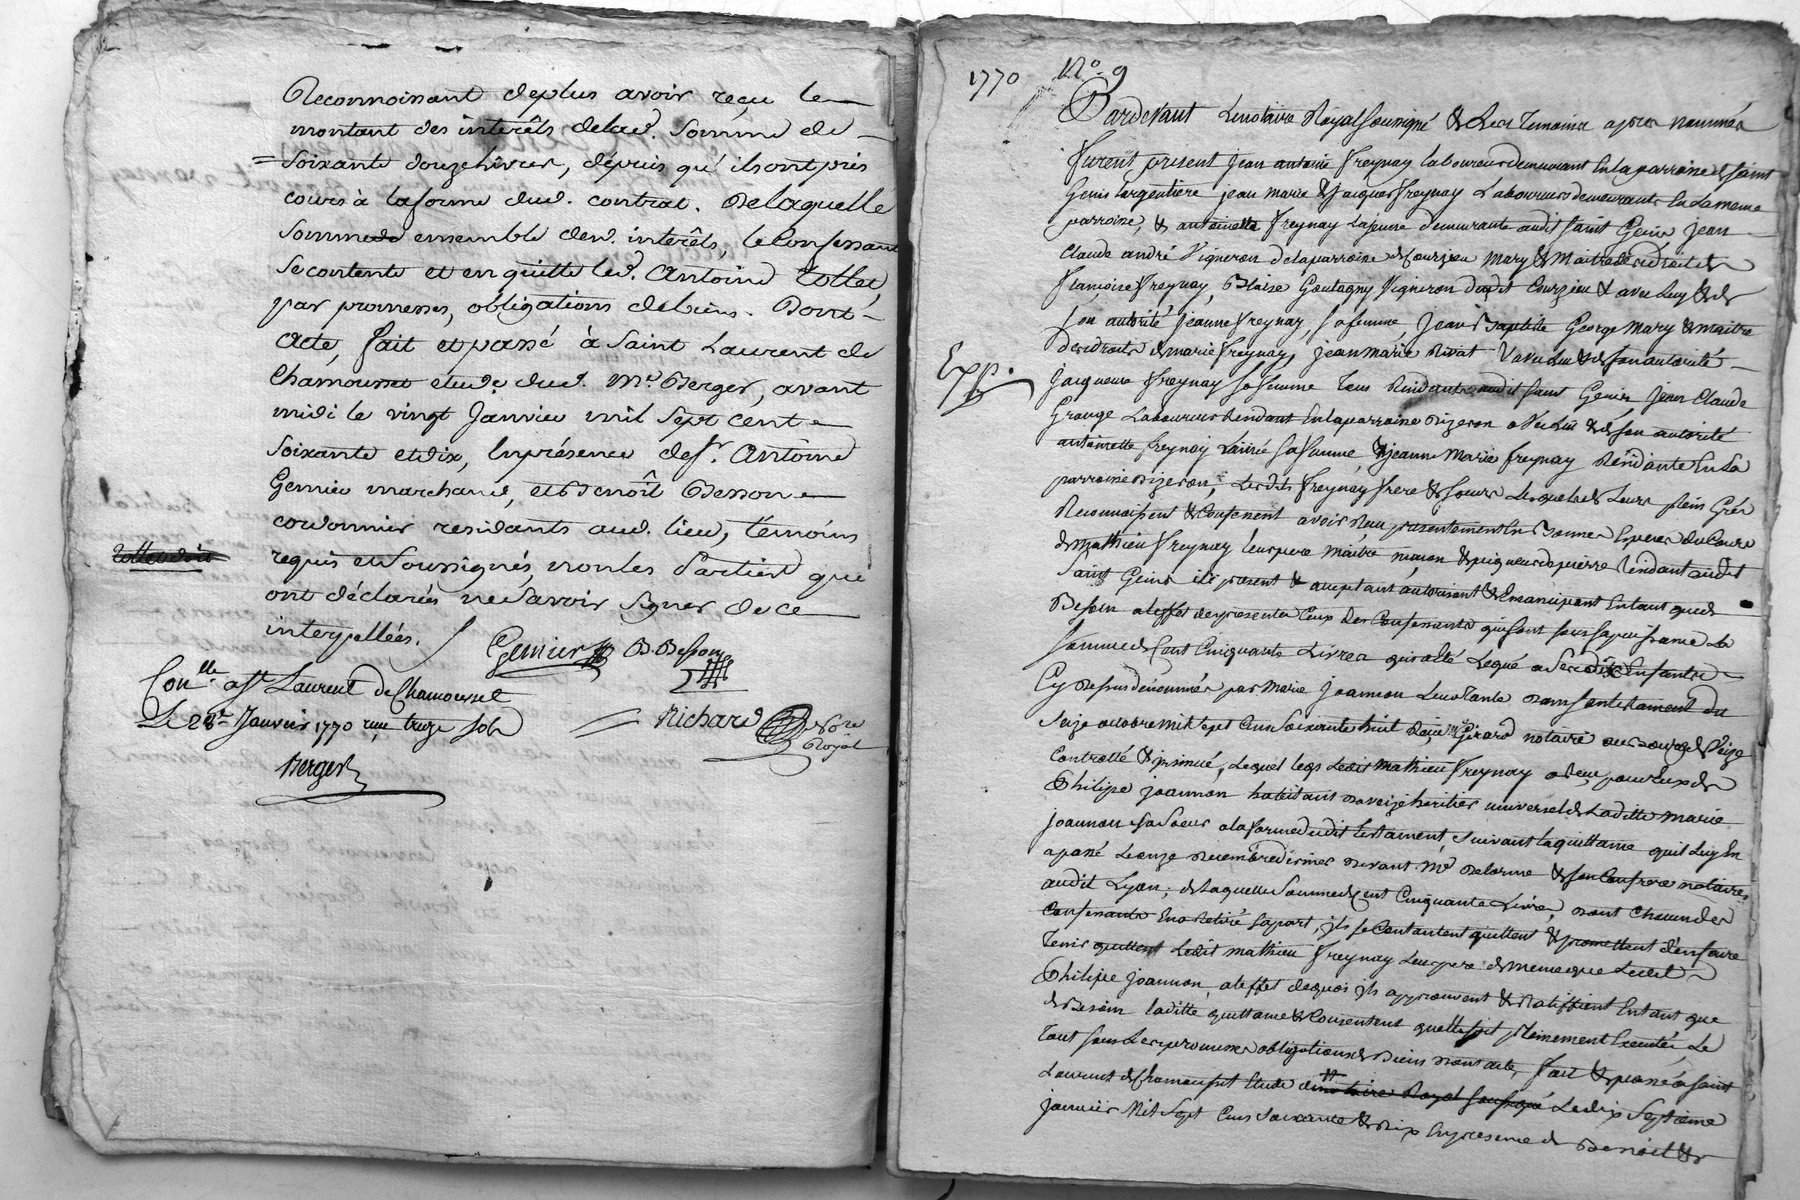 Reconnoissant deplus avoir reçu le
montant des interêts delad. Somme de
= Soixante douze livres, depuis qu'ils ont pris
cours à la forme dud. contrat. De laquelle
Somme ensemble desd. interêts, le Confessant
se contente et en quitte led. Antoine
par promesses, obligations de biens. Dont
Acte, fait et passé à Saint Laurent de
Chamousset etude dud. Me. Berger, avant
midi le vingt Janvier mil sept cent
Soixante et dix, En présence de sr. Antoine
Gernier marchand, et Benoît Besson
cordonnier residants aud. lieu, témoins
requis et Soussignés, non les Parties que
ont déclarées ne Savoir Signer de ce
interpellées.
Gernier B. Besson
Con.lle a St Laurent de Chamousset
Le 28e Janvier 1770 reçu treize sols
Richard no.re Royal
Berger
1770 No. 9
Pardevant Le notaire Royal soussigné & Les Temoins apres nommés
furent present Jean antoine freynay laboureur demeurant En la parroisse de saint
Genis l'argentiere jean marie & jacques freynay Laboureurs demeurants En La meme
parroisse, & antoinette freynay La jeune demeurante audit saint Genis, jean
Claude andré Vigneron de la parroisse de Courzieu mary & maitre des droits de
françoise freynay, Blaise Goutagny Vigneron dudit Courzieu & avec Luy & de
son autorité jeanne freynay, sa femme, Jean Baptiste George mary & maitre
des droits de marie freynay, jean marie Rivat & avec Lui & de son autorité
Expp.
jacqueme freynay sa femme Tous Residants audit saint Genis jean Claude
Grange Laboureur Residant En la parroisse d'izeron avec Lui & de son autorité
antoinette freynay L'ainée sa femme, & jeanne marie freynay Residante En La
parroisse d'izeron, Lesdits freynay frere & soeurs Lesquels de Leurs plein Grés
Reconnaissent & Confessent avoir Reçu presentement En Bonnes Especes du Cours
de mathieu freynay leur pere maitre maçon & piqueur de pierre Residant audit
saint Genis ici present & acceptant autorisant & Emancipant En tant que de
Besoin a l'effet des presentes Ceux des Confessants qui sont sous sa puissance La
somme de Cent Cinquante Livres qui a été Legué a ses dix Enfants
Cy dessus denommés par marie joannon Leur Tante dans son testament du
seize octobre mil sept Cens soixante huit Reçu Me Girard notaire au Bourg de
Controllé & insinué, Lequel legs Ledit mathieu freynay a Reçu pour Eux de
Philipe joannon habitant heritier universel de Laditte marie
joannon sa soeur a la forme dudit testament, suivant la quittance qu'il Luy En
a passé Le onze decembre dernier devant Me Delorme & son Confrere notaires
audit Lyon; de Laquelle somme de Cent Cinquante Livres, dont Chacun des
Confessants En a Retiré sa part, ils se Contentent quittent & promettent d'en faire
Tenir quittent Ledit mathieu freynay Leur pere de meme que Ledit
Philipe joannon, a l'effet de quoi ils approuvent & Ratiffient En tant que
de Besoin laditte quittance & Consentent qu'elle soit pleinement Executée, Le
Tout sous Les promesses obligations de Biens dont acte, fait & passé a saint
Laurent de Chamousset Etude du notaire Royal soussigné Le dix Septieme
janvier Mil Sept Cens soixante & Dix En presence de Benoit